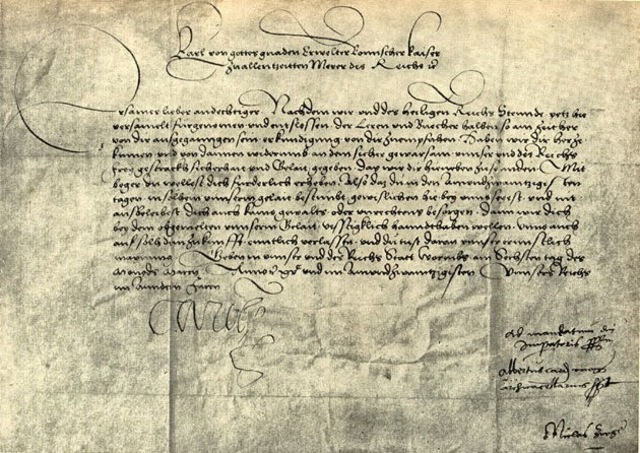 Karl von gottes gnaden Erwelter Romischer kaiser
zuallenntzeitten Merer des Reichs &c
Ersamer lieber andechtiger Nachdem wir vnd des heiligen Reichs Stennde yetz hie
versamelt furgenomen vnd entslossen der Leren vnd Buecher halben so ain zeither
von dir ausgegangen sein erkundigung von dir zuempfahen Haben wir dir herzu
kumen vnd von dannen widerumb an dein sicher gewarsam vnnser vnd des Reichs
frey gestracks sicherhait vnd Gelait gegeben daz wir dir hieneben zusenden Mit
beger du wellest dich furderlich erheben Also daz du in den ainundzwaintzigisten
tagen in solhem vnnserm gelait bestimbt gewislichen hie bey vnns seiest vnd nit
aussbleibest dich auch kains gewalts oder vnrechtens besorgen dann wir dich
bey dem obgemelten vnnserm Gelait vestigklich hanndthaben wellen vnns auch
auf solh dein zukunfft enntlich verlassen vnd du tust daran vnnser ernnstlich
maynung Geben in vnnser vnd des Reichs Stat Wormbs am Sechsten tag des
Monats Marcy Anno &c vnd im Ainundzwaintzigisten Vnnsers Reichs
im Anndern Jaren
Carolus
Ad mandatum dni
Imperatoris
Albertus car
archicancellarius
Niclas